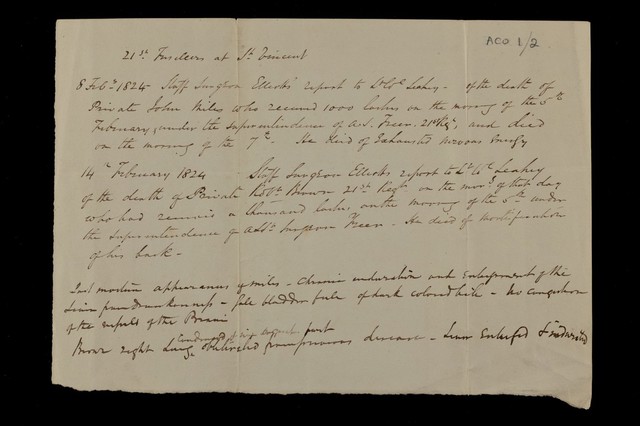 ACO 1/2
21st Fusileers at St Vincent
8 Feby 1824 - Staff Surgeon Elliot's report to Lt Col Leahy - of the death of
Private John Miles who received 1000 lashes on the morning of the 5th
February, under the superintendence of A.S. Freer. 21st Regt, and died
on the morning of the 7th. He died of Exhausted nervous Energy
14th February 1824 Staff Surgeon Elliot's report to Lt Col Leahy
of the death of Private Robt Brown 21st Regt on the morng of that day
who had received a thousand lashes on the morning of the 5th under
the superintendence of Asst Surgeon Freer - He died of Mortification
of his back -
Post mortem appearances of Miles - Chronic induration and Enlargement of the
Liver from Drunkenness - Gall bladder full of dark colored bile - No congestion
of the vessels of the Brain
Brown right Lung part from previous disease - Liver Enlarged & indurated